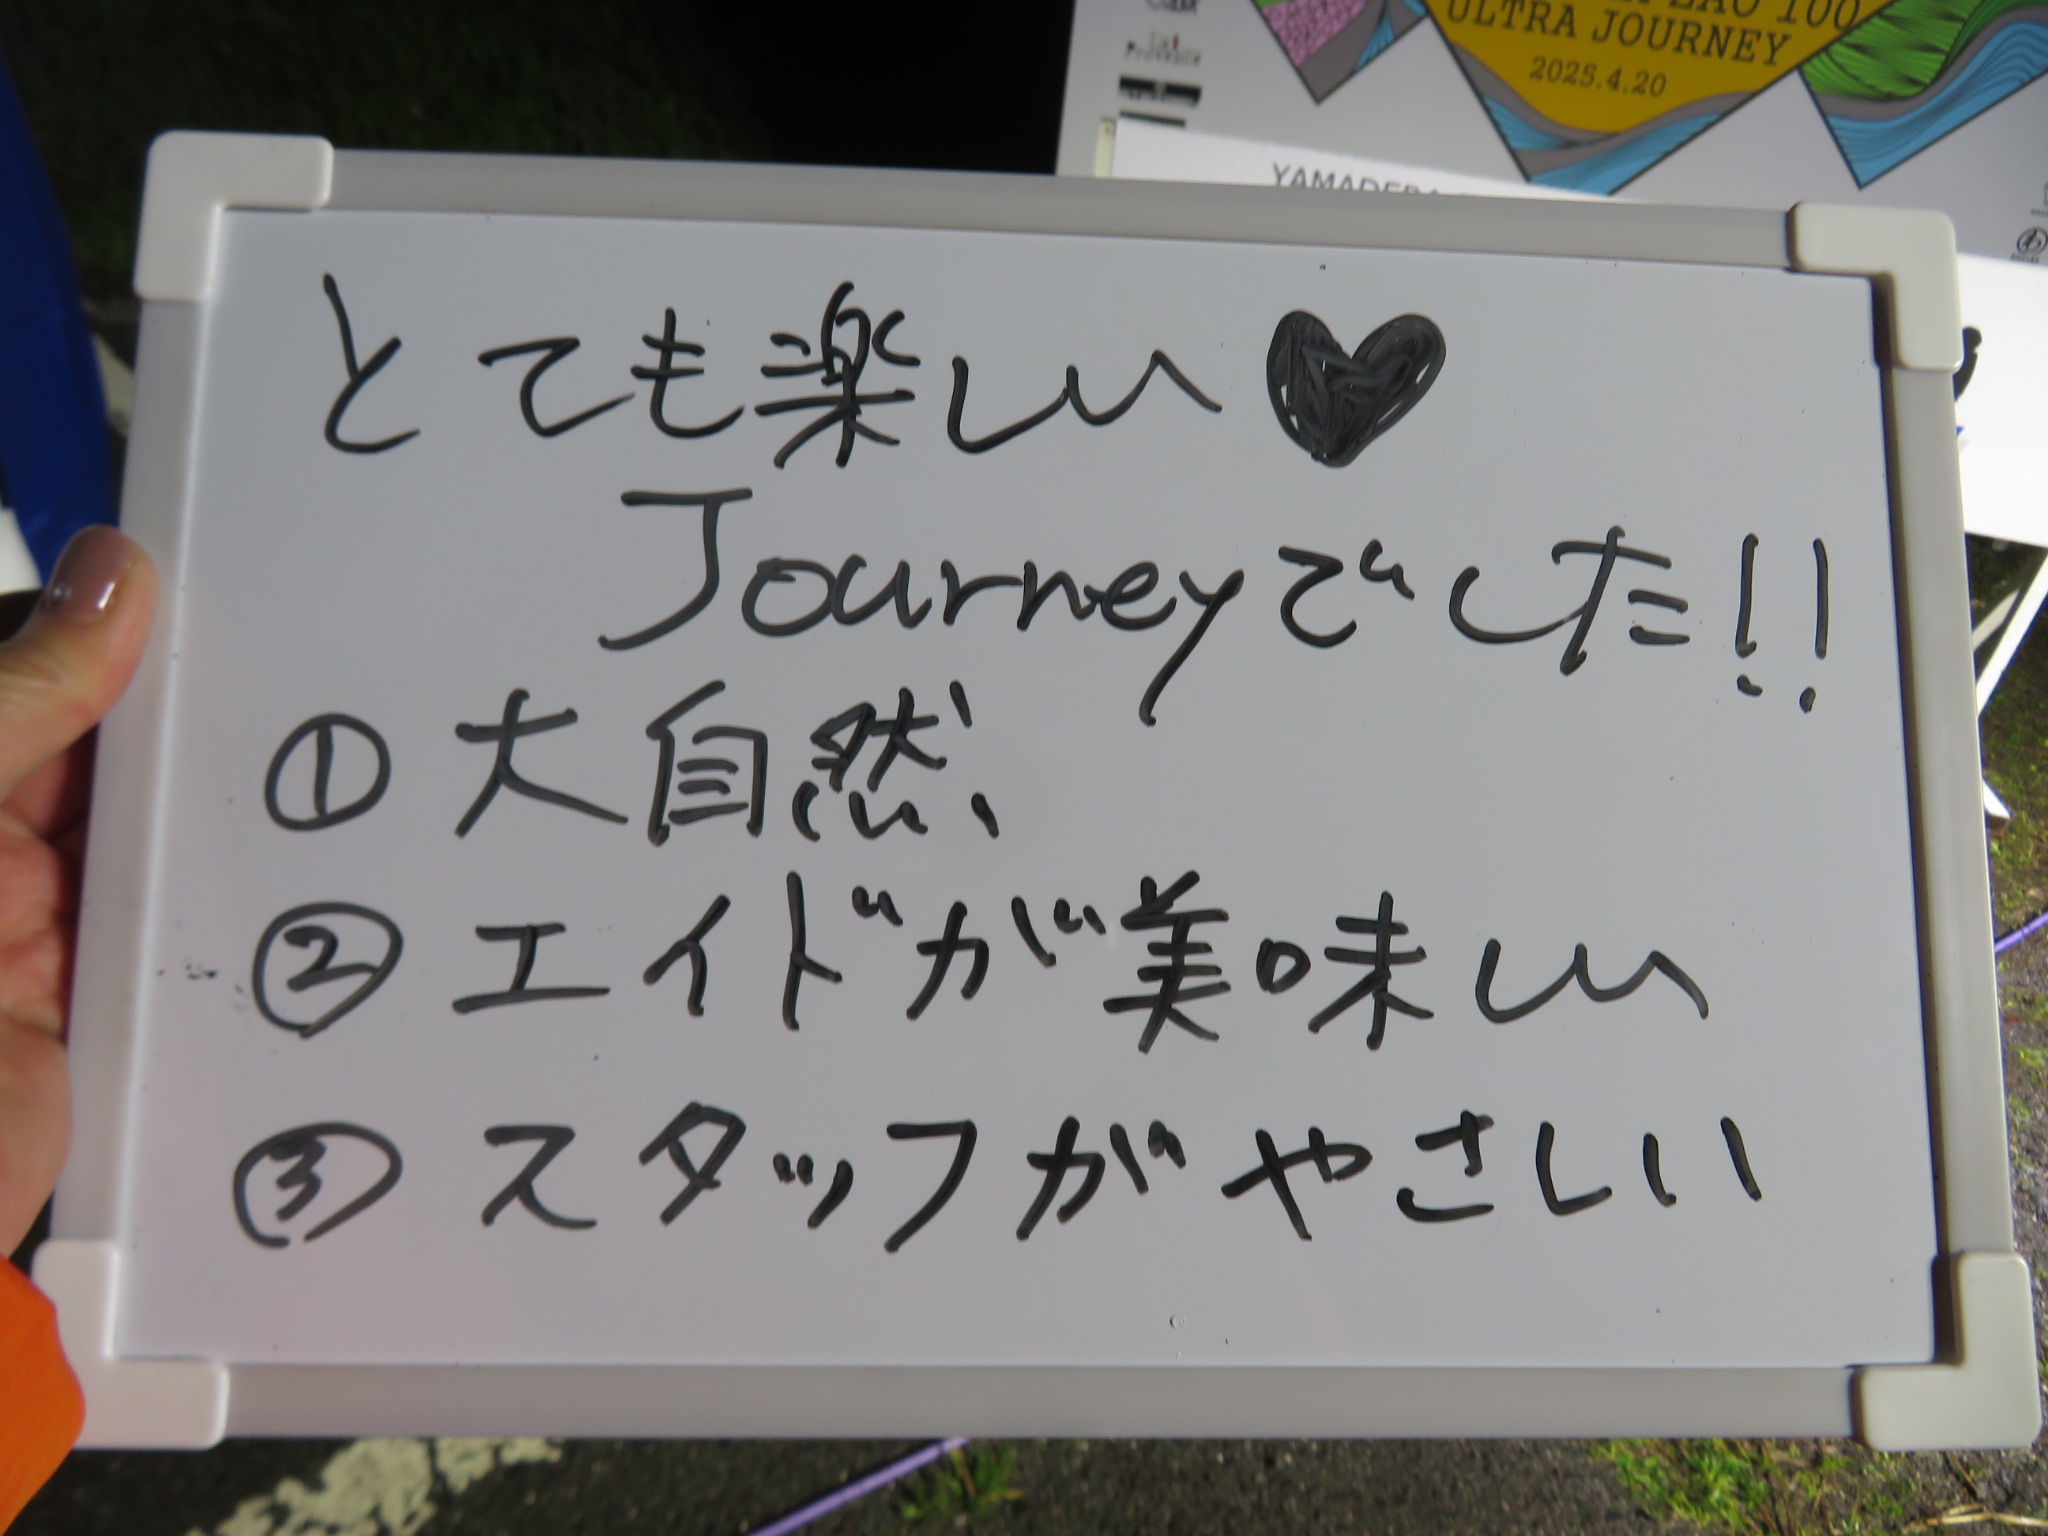 ZAO 100
ULTRA JOURNEY
2025.4.20
Provence
とても楽しい♥
Journeyでした!!
① 大自然
② エイドが美味しい
③ スタッフがやさしい